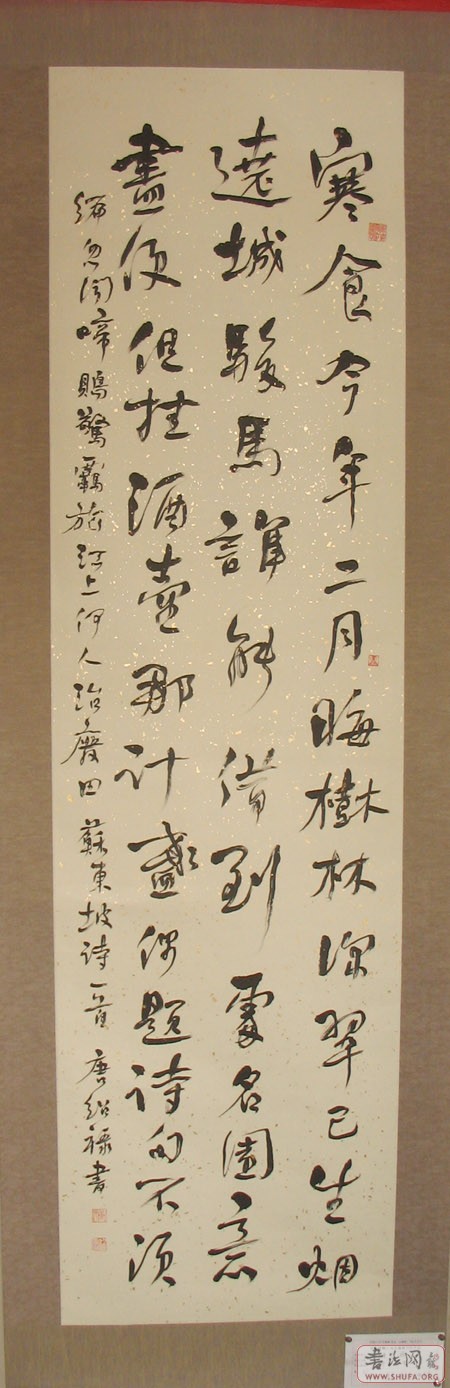 寒食今年二月晦樹林深翠已生烟
遶城駿馬誰能借到處名園意
盡便但挂酒壺那計盞偶題詩句不須
編忽聞啼鵙驚羈旅江上何人治廢田 蘇東坡詩一首 唐紹祿書
書法网
WWW.SHUFA.ORG